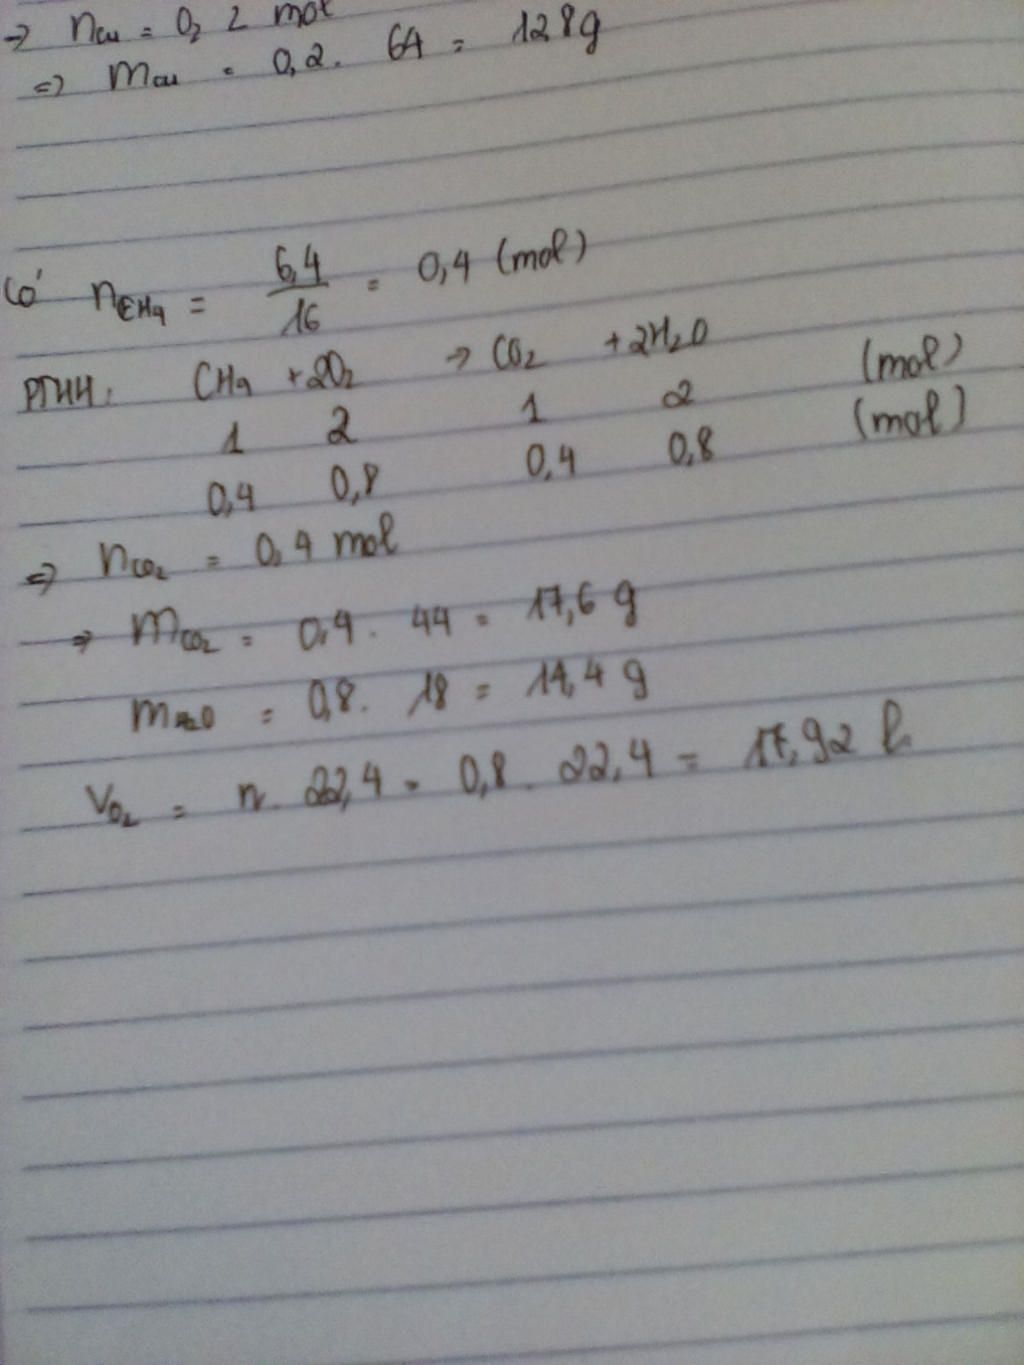 → nCu = 0,2 mol
=> mCu = 0,2. 64 = 12,8g
Có nCH4 = 6,4/16 = 0,4 (mol)
PTHH: CH4 + 2O2 → CO2 + 2H2O
1 2 1 2 (mol)
0,4 0,8 0,4 0,8 (mol)
=> nCO2 = 0,4 mol
=> mCO2 = 0,4. 44 = 17,6 g
mH2O = 0,8. 18 = 14,4 g
VO2 = n. 22,4 = 0,8. 22,4 = 17,92 l